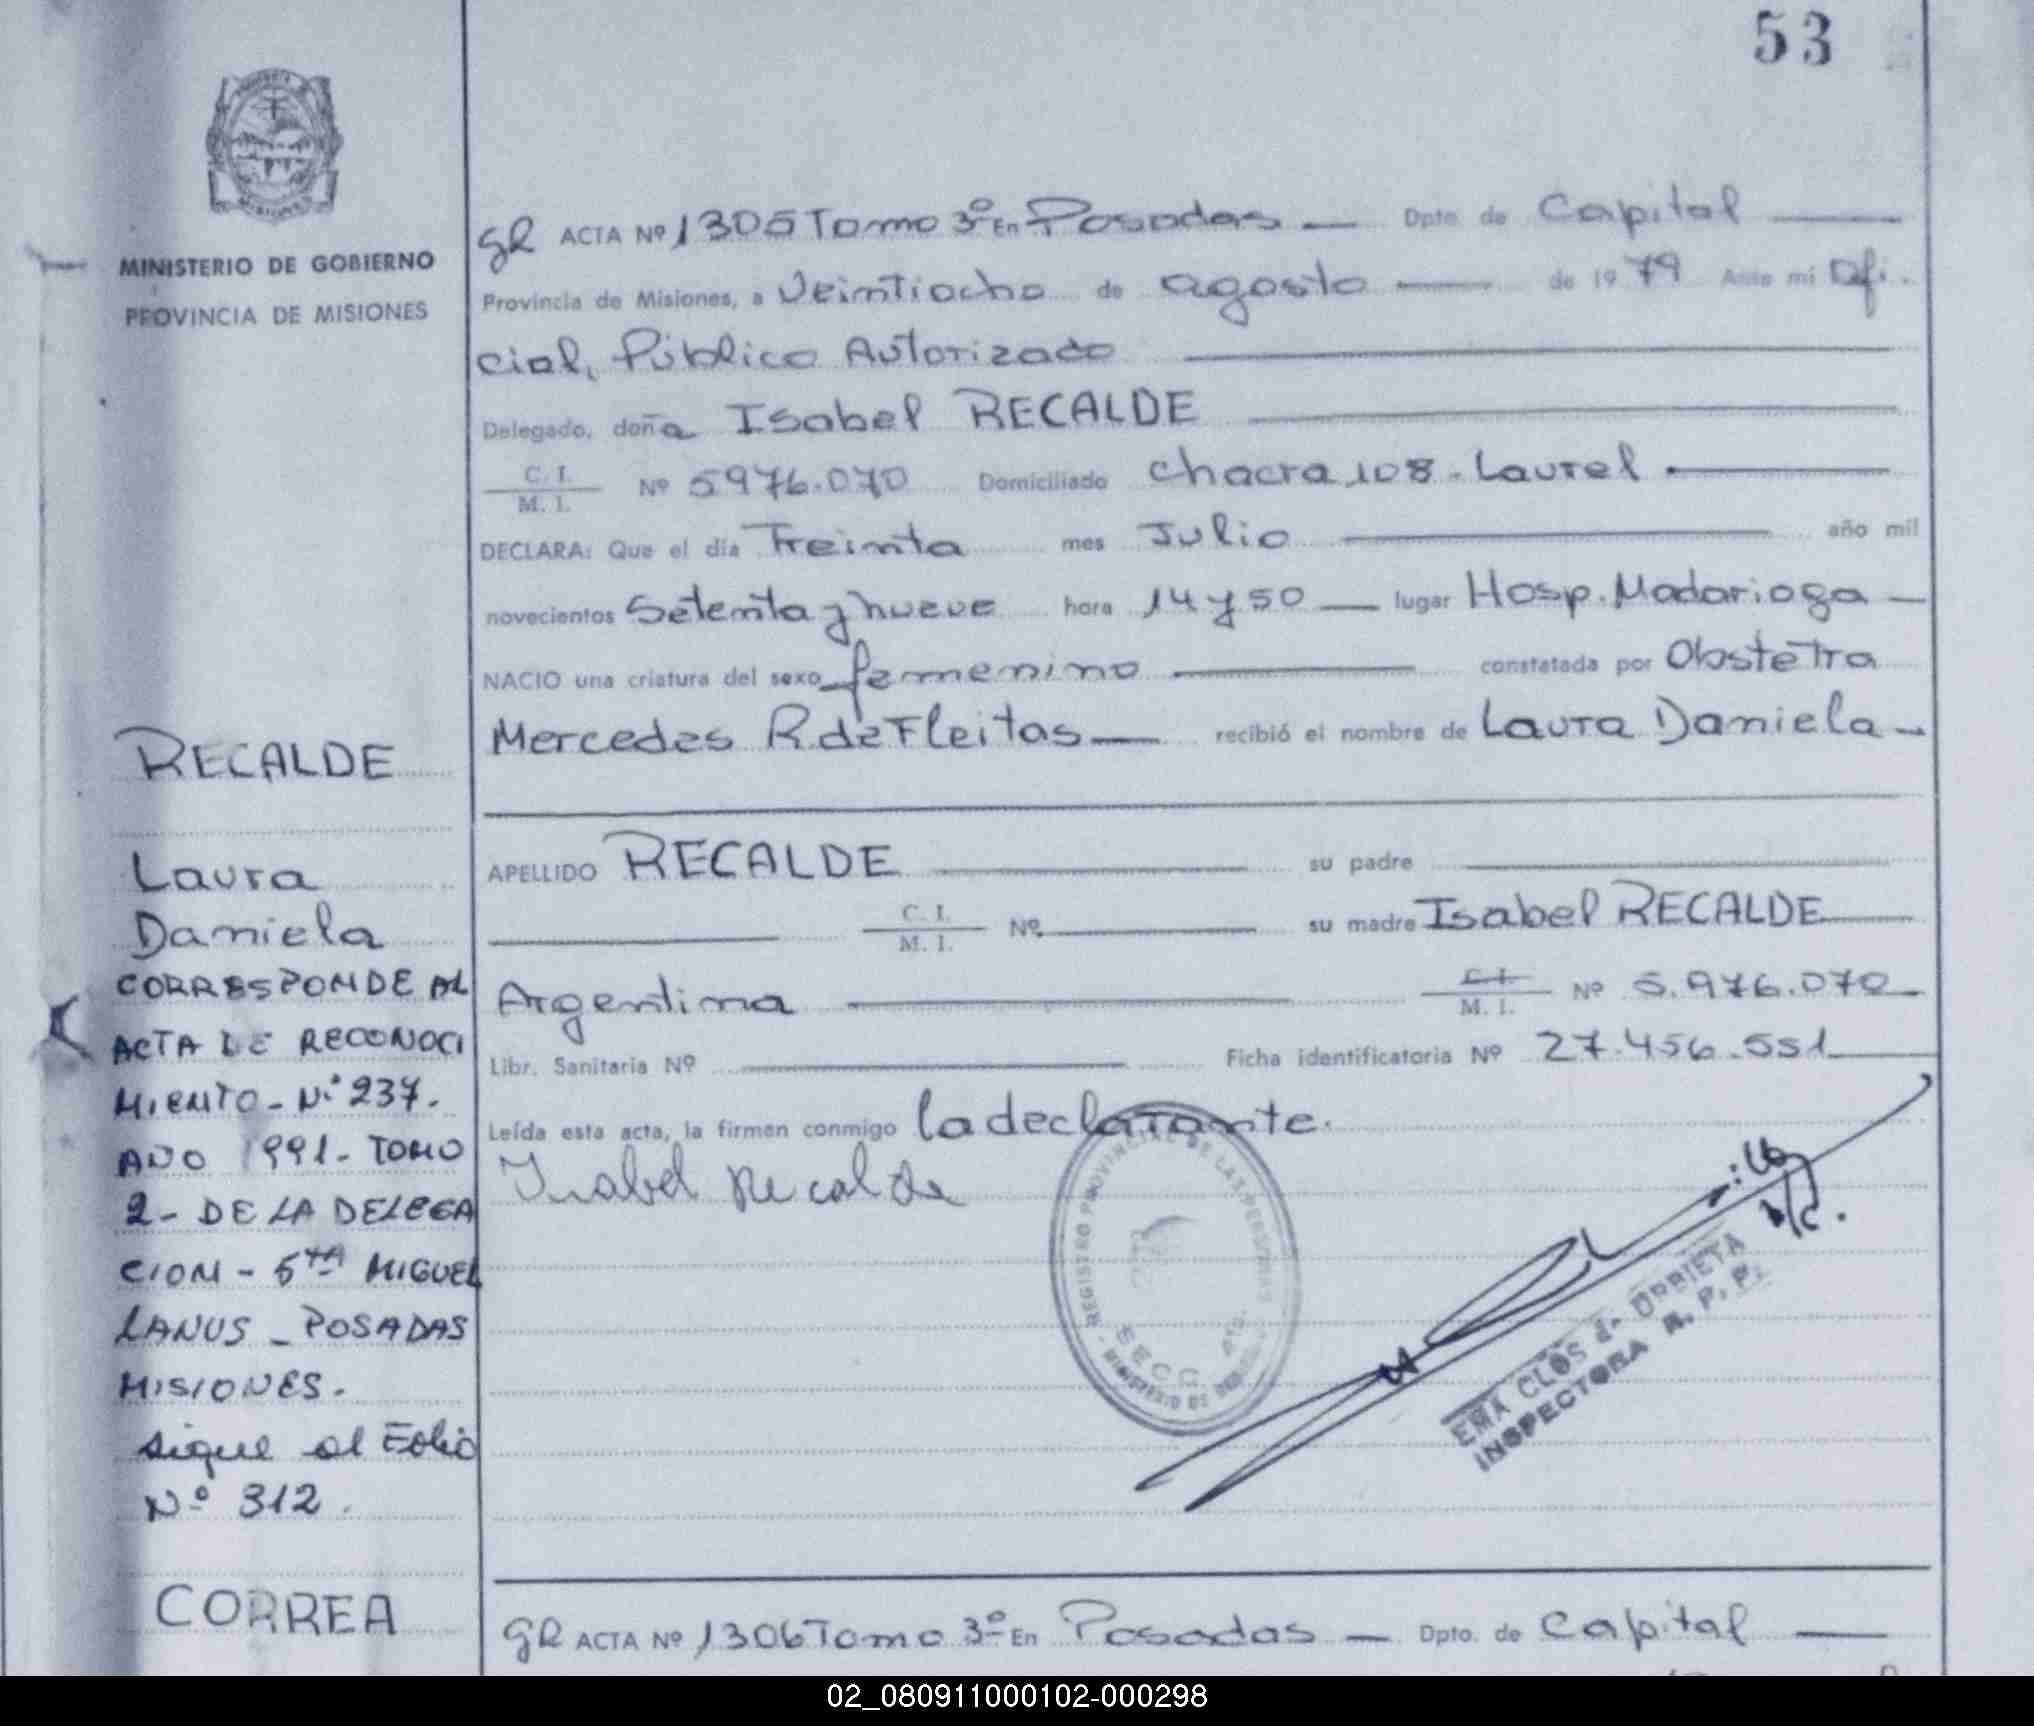 53
MINISTERIO DE GOBIERNO
PROVINCIA DE MISIONES
gR ACTA Nº 1305 Tomo 3º En Posadas — Dpto. de Capital
Provincia de Misiones, a Veintiocho de agosto de 1979 Ante mi Ofi.
cial, Público Autorizado
Delegado, doña Isabel RECALDE
C. I. / M. I. Nº 5976.070 Domiciliado Chacra 108 - Laurel
DECLARA: Que el día Treinta mes Julio año mil
novecientos Setenta y nueve hora 14 y 50 — lugar Hosp. Madariaga —
NACIO una criatura del sexo femenino constatada por Obstetra
Mercedes R. de Fleitas — recibió el nombre de Laura Daniela —
APELLIDO RECALDE su padre
C. I. / M. I. Nº su madre Isabel RECALDE
Argentina C. I. / M. I. Nº 5.976.070
Libr. Sanitaria Nº Ficha identificatoria Nº 27.456.551
Leída esta acta, la firman conmigo la declarante.
Isabel Recalde
REGISTRO PROVINCIAL DE LAS PERSONAS
SECC.
EMA CLOS de URRIETA
INSPECTORA R. P. P.
RECALDE
Laura
Daniela
CORRESPONDE AL
ACTA DE RECONOCI
MIENTO - Nº 237.
AÑO 1991 - TOMO
2 - DE LA DELEGA
CION - 5ta MIGUEL
LANUS - POSADAS
MISIONES.
sigue al Folio
Nº 312.
CORREA
gR ACTA Nº 1306 Tomo 3º En Posadas — Dpto. de Capital —
02_080911000102-000298